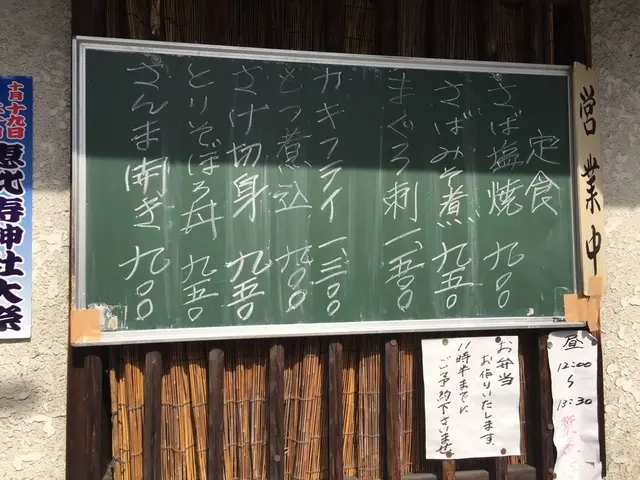 定食
さば塩焼 九〇〇
さばみそ煮 九五〇
まぐろ刺 一、五〇〇
カキフライ 一、三〇〇
もつ煮込 九〇〇
さけ切身 九五〇
とりそぼろ丼 九五〇
さんま開き 九〇〇
営業中
お弁当
お作りいたします。
11時半までに
ご予約下さいませ
昼
12:00
〜
13:30
十月十九日
恵比寿神社大祭